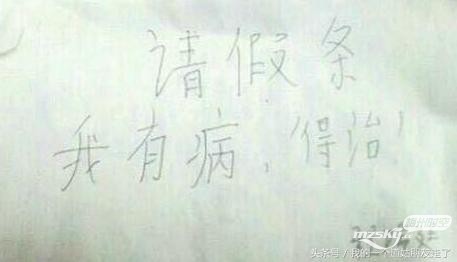 请假条
我有病，得治！
mzsky.cc
头条号／我的一个道姑朋友疯了